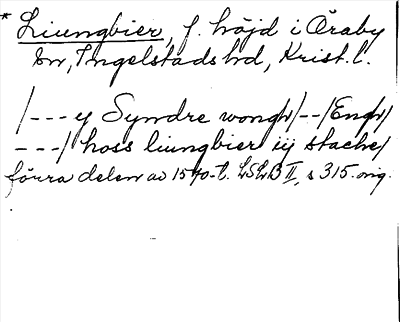 * Liungbier, f. höjd i Öraby
sn, Ingelstads hd, Krist. l.
/---y Syndre wongh/--/Engh/
---/ hoss liungbier iij stache/
förra delen av 1570-t. LSLB II, s 315. orig.